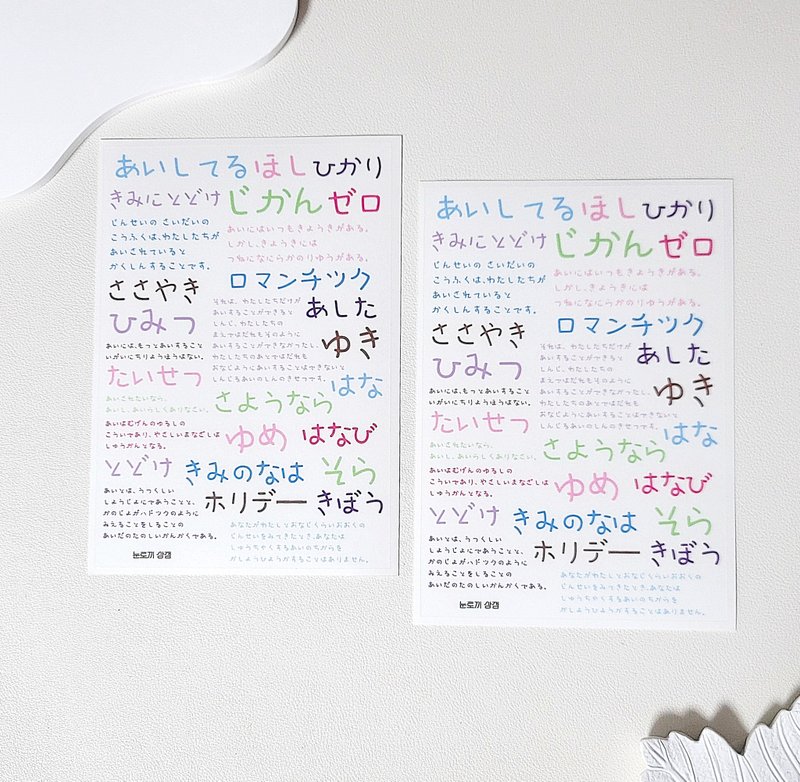 あいしてる ほし ひかり
きみにとどけ じかん ゼロ
じんせいの さいだいの
こうふくは、わたしたちが
あいされていると
かくしんすることです。
あいにはいつもきょうきがある。
しかし、きょうきには
つねに りゆうがある。
ささやき
ロマンチック
ひみつ
それは、わたしたちだけが
あいすることができると
しんじ、わたしたちの
まえではだれもそのように
あいすることができなかったし、
わたしたちのあとではだれも
おなじようにあいすることはできないと
しんじるあいのしんのきせつです。
あした
ゆき
あいには、もっとあいすること
いがいにちりょうほうはない。
たいせつ
はな
あいされたいなら、
あいし、あいらしくありなさい。
さようなら
あいはむげんのゆるしの
こういであり、やさしいまなざしは
しゅうかんとなる。
ゆめ はなび
とどけ きみのなは そら
あいとは、うつくしい
しょうじょにであうことと、
かのじょがハドックのように
みえることをしることの
あいだのたのしいかんかくである。
ホリデー きぼう
あなたがわたしとおなじくらいおおくの
じんせいをみてきたとき、あなたは
しゅうちゃくするあいのちからを
かしょうひょうかすることはありません。
눈토끼 상점
あいしてる ほし ひかり
きみにとどけ じかん ゼロ
じんせいの さいだいの
こうふくは、わたしたちが
あいされていると
かくしんすることです。
あいにはいつもきょうきがある。
しかし、きょうきには
つねに りゆうがある。
ささやき
ロマンチック
ひみつ
それは、わたしたちだけが
あいすることができると
しんじ、わたしたちの
まえではだれもそのように
あいすることができなかったし、
わたしたちのあとではだれも
おなじようにあいすることはできないと
しんじるあいのしんのきせつです。
あした
ゆき
あいには、もっとあいすること
いがいにちりょうほうはない。
たいせつ
はな
あいされたいなら、
あいし、あいらしくありなさい。
さようなら
あいはむげんのゆるしの
こういであり、やさしいまなざしは
しゅうかんとなる。
ゆめ はなび
とどけ きみのなは そら
あいとは、うつくしい
しょうじょにであうことと、
かのじょがハドックのように
みえることをしることの
あいだのたのしいかんかくである。
ホリデー きぼう
あなたがわたしとおなじくらいおおくの
じんせいをみてきたとき、あなたは
しゅうちゃくするあいのちからを
かしょうひょうかすることはありません。
눈토끼 상점